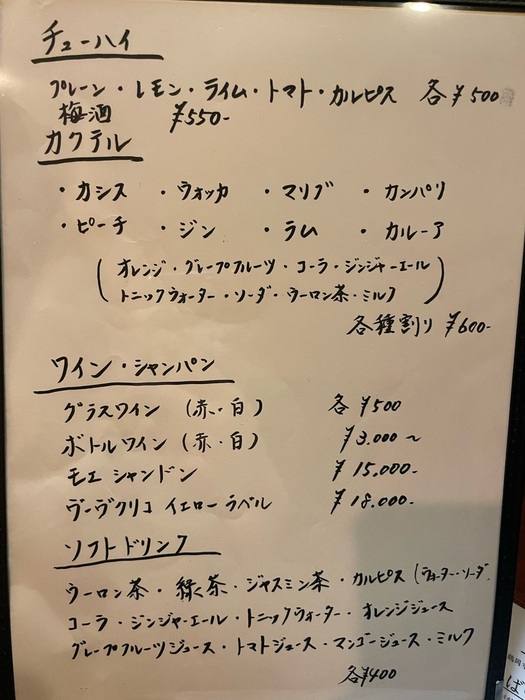 チューハイ
プレーン・レモン・ライム・トマト・カルピス 各¥500
梅酒 ¥550-
カクテル
・カシス ・ウォッカ ・マリブ ・カンパリ
・ピーチ ・ジン ・ラム ・カルーア
(オレンジ・グレープフルーツ・コーラ・ジンジャーエール
トニックウォーター・ソーダ・ウーロン茶・ミルク)
各種割り ¥600-
ワイン・シャンパン
グラスワイン (赤・白) 各¥500
ボトルワイン (赤・白) ¥3.000~
モエ シャンドン ¥15.000-
ヴーヴクリコ イエローラベル ¥18.000-
ソフトドリンク
ウーロン茶・緑茶・ジャスミン茶・カルピス(ウォーター・ソーダ
コーラ・ジンジャーエール・トニックウォーター・オレンジジュース
グレープフルーツジュース・トマトジュース・マンゴージュース・ミルク
各¥400